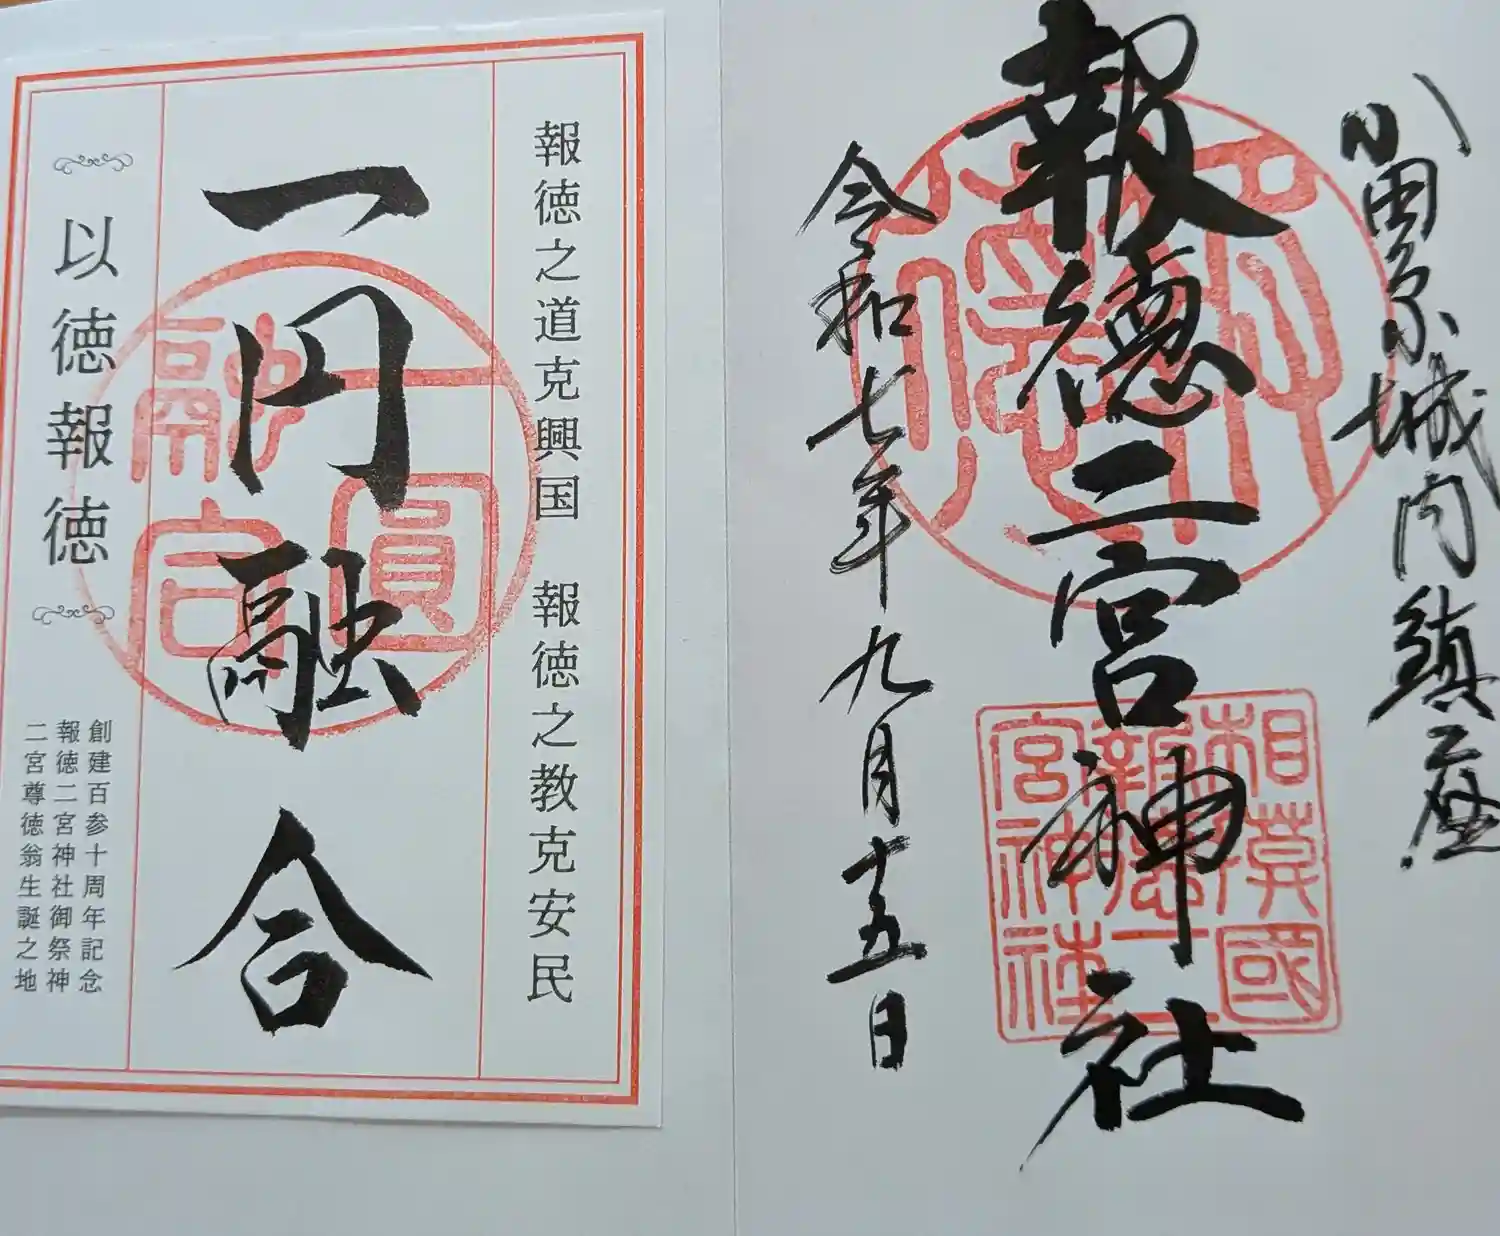 小田原城内鎮座
報徳二宮神社
令和七年九月十五日
相模國
報徳二
宮神社
報徳之道克興国　報徳之教克安民
一円融合
一圓融合
以徳報徳
創建百参十周年記念
報徳二宮神社御祭神
二宮尊徳翁生誕之地